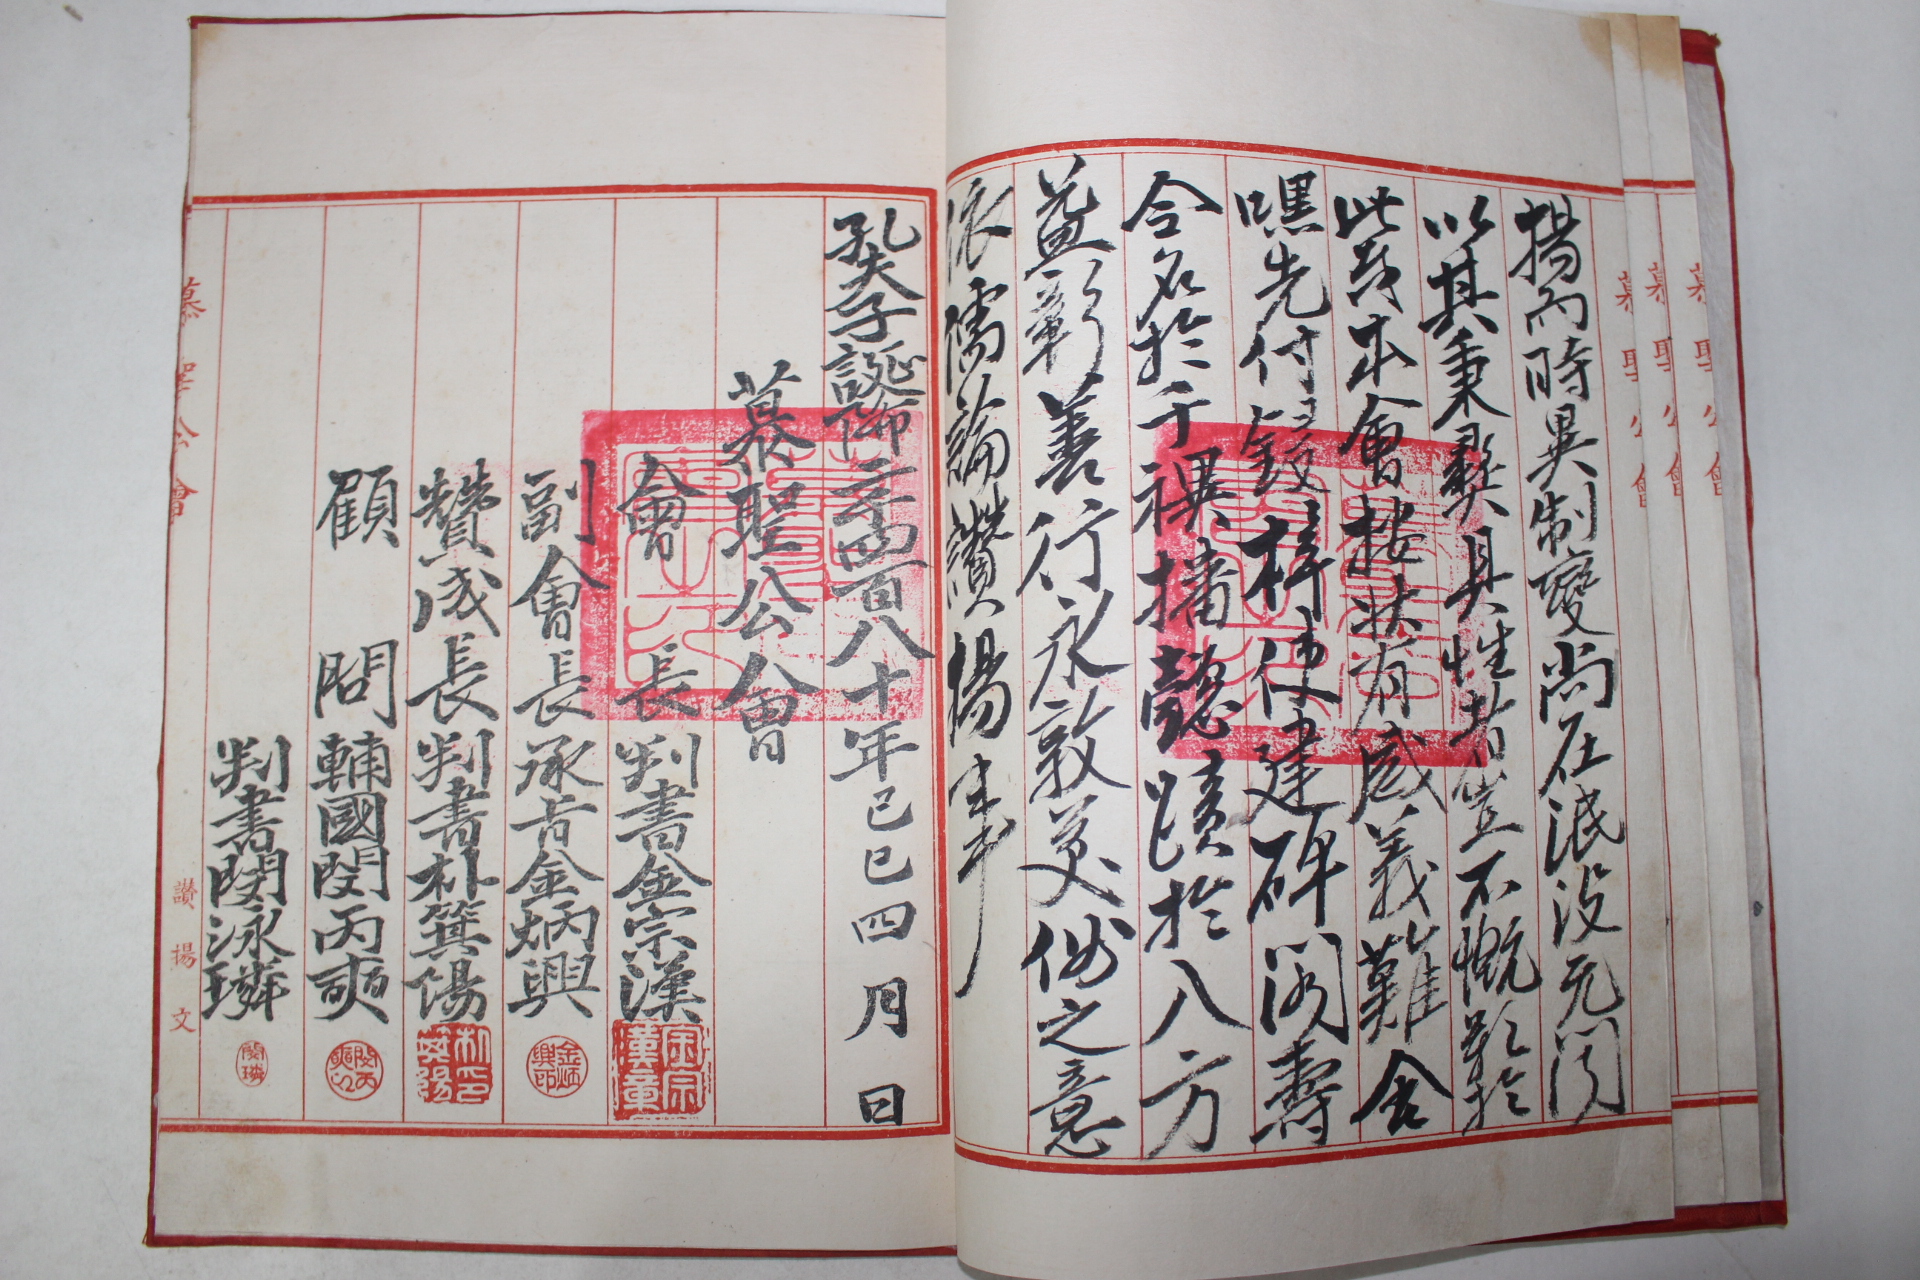 揚而時異制變尚在泯沒无聞
以其秉彝具性者豈不慨歎於
此哉本會按狀有感義難舍
嘿先付剞劂梓使建碑閣壽
令名於千禩播懿蹟於八方
益彰善行永敦美俗之意
依儒論讚揚事
孔夫子誕降二千四百八十年己巳四月 日
慕聖公會
會長 判書金宗漢
副會長 承旨金炳興
贊成長 判書朴箕陽
顧問 輔國閔丙奭
判書閔泳璘
慕聖公會 讚揚文